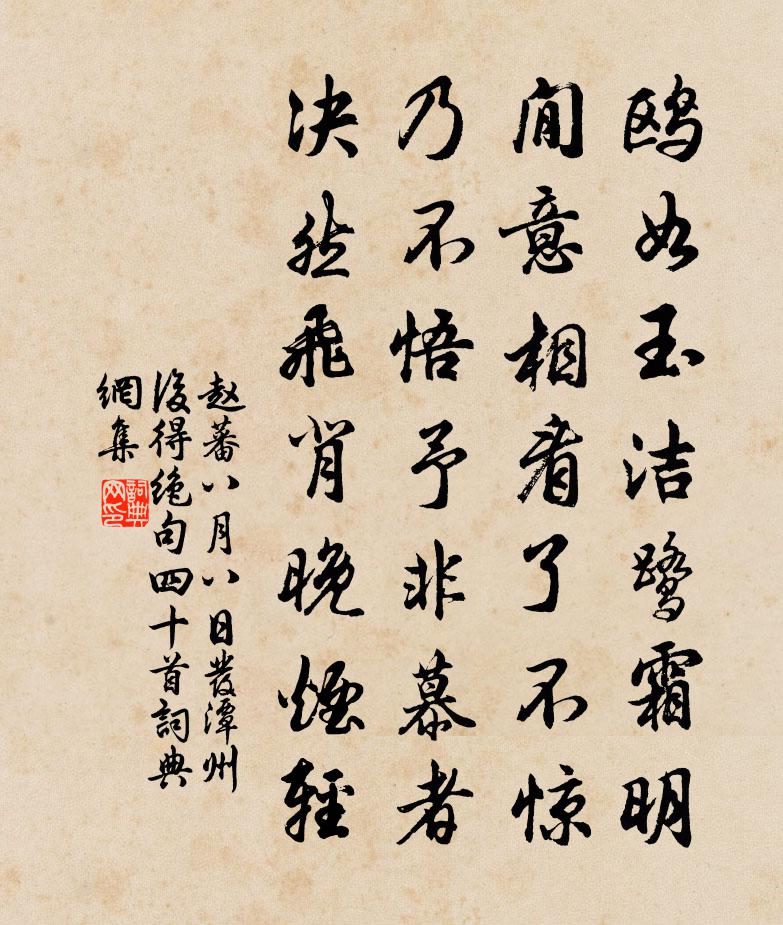 鸥如玉洁鹭霜明
闲意相看了不惊
乃不悟予非慕者
决然飞背晚烟轻
赵蕃八月八日發潭州
後得绝句四十首詞典
網集
詞典网印